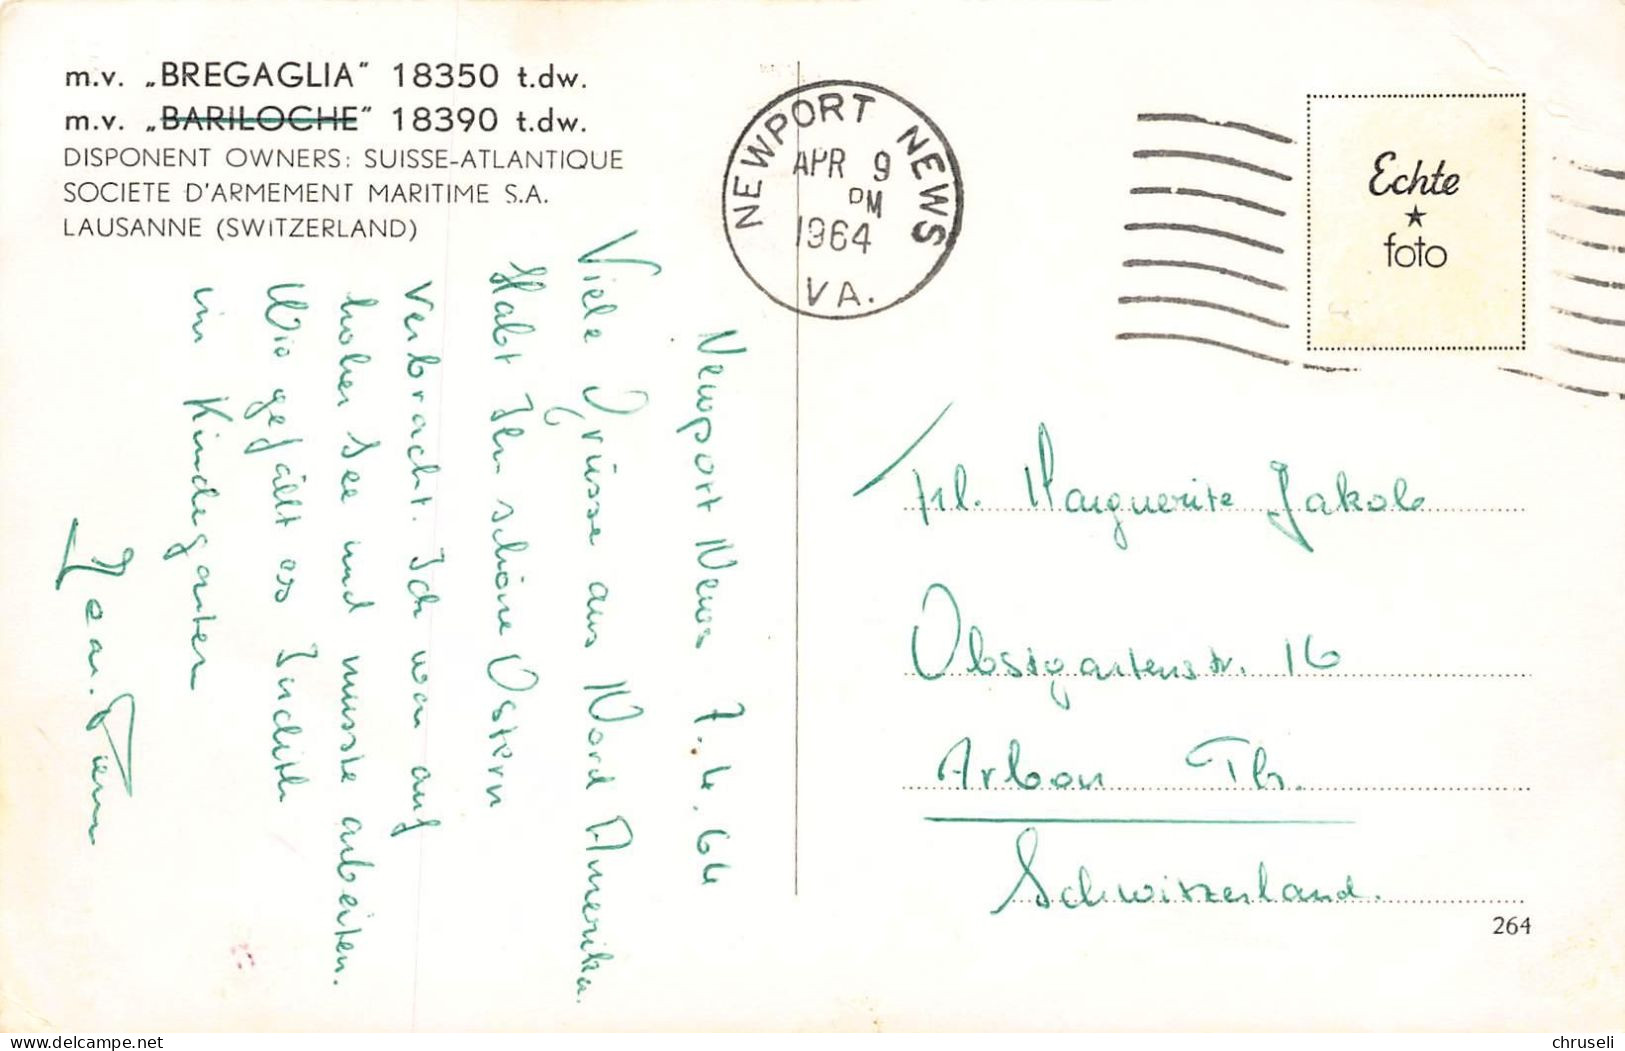 m.v. „BREGAGLIA" 18350 t.dw.
m.v. „BARILOCHE" 18390 t.dw.
DISPONENT OWNERS: SUISSE-ATLANTIQUE
SOCIETE D'ARMEMENT MARITIME S.A.
LAUSANNE (SWITZERLAND)
NEWPORT NEWS
APR 9
PM
1964
VA.
Echte
foto
Newport News 7.4.64
Viele Grüsse aus Nord Amerika.
Habt Ihr schöne Ostern
verbracht. Ich war auf
hoher See und musste arbeiten.
Wie gefällt es Judith
im Kindergarten
Frl. Marguerite Jakob
Obstgartenstr. 16
Arbon Tb.
Schwitzerland.
264
www.delcampe.net
chruseli